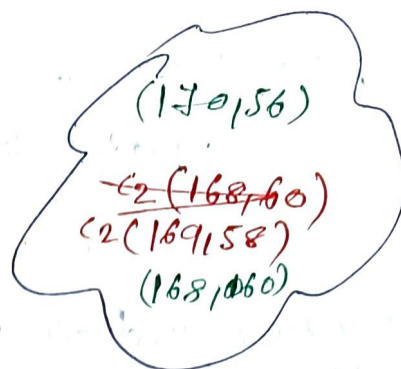 (170,56)
C2(168,60)
C2(169,58)
(168,60)